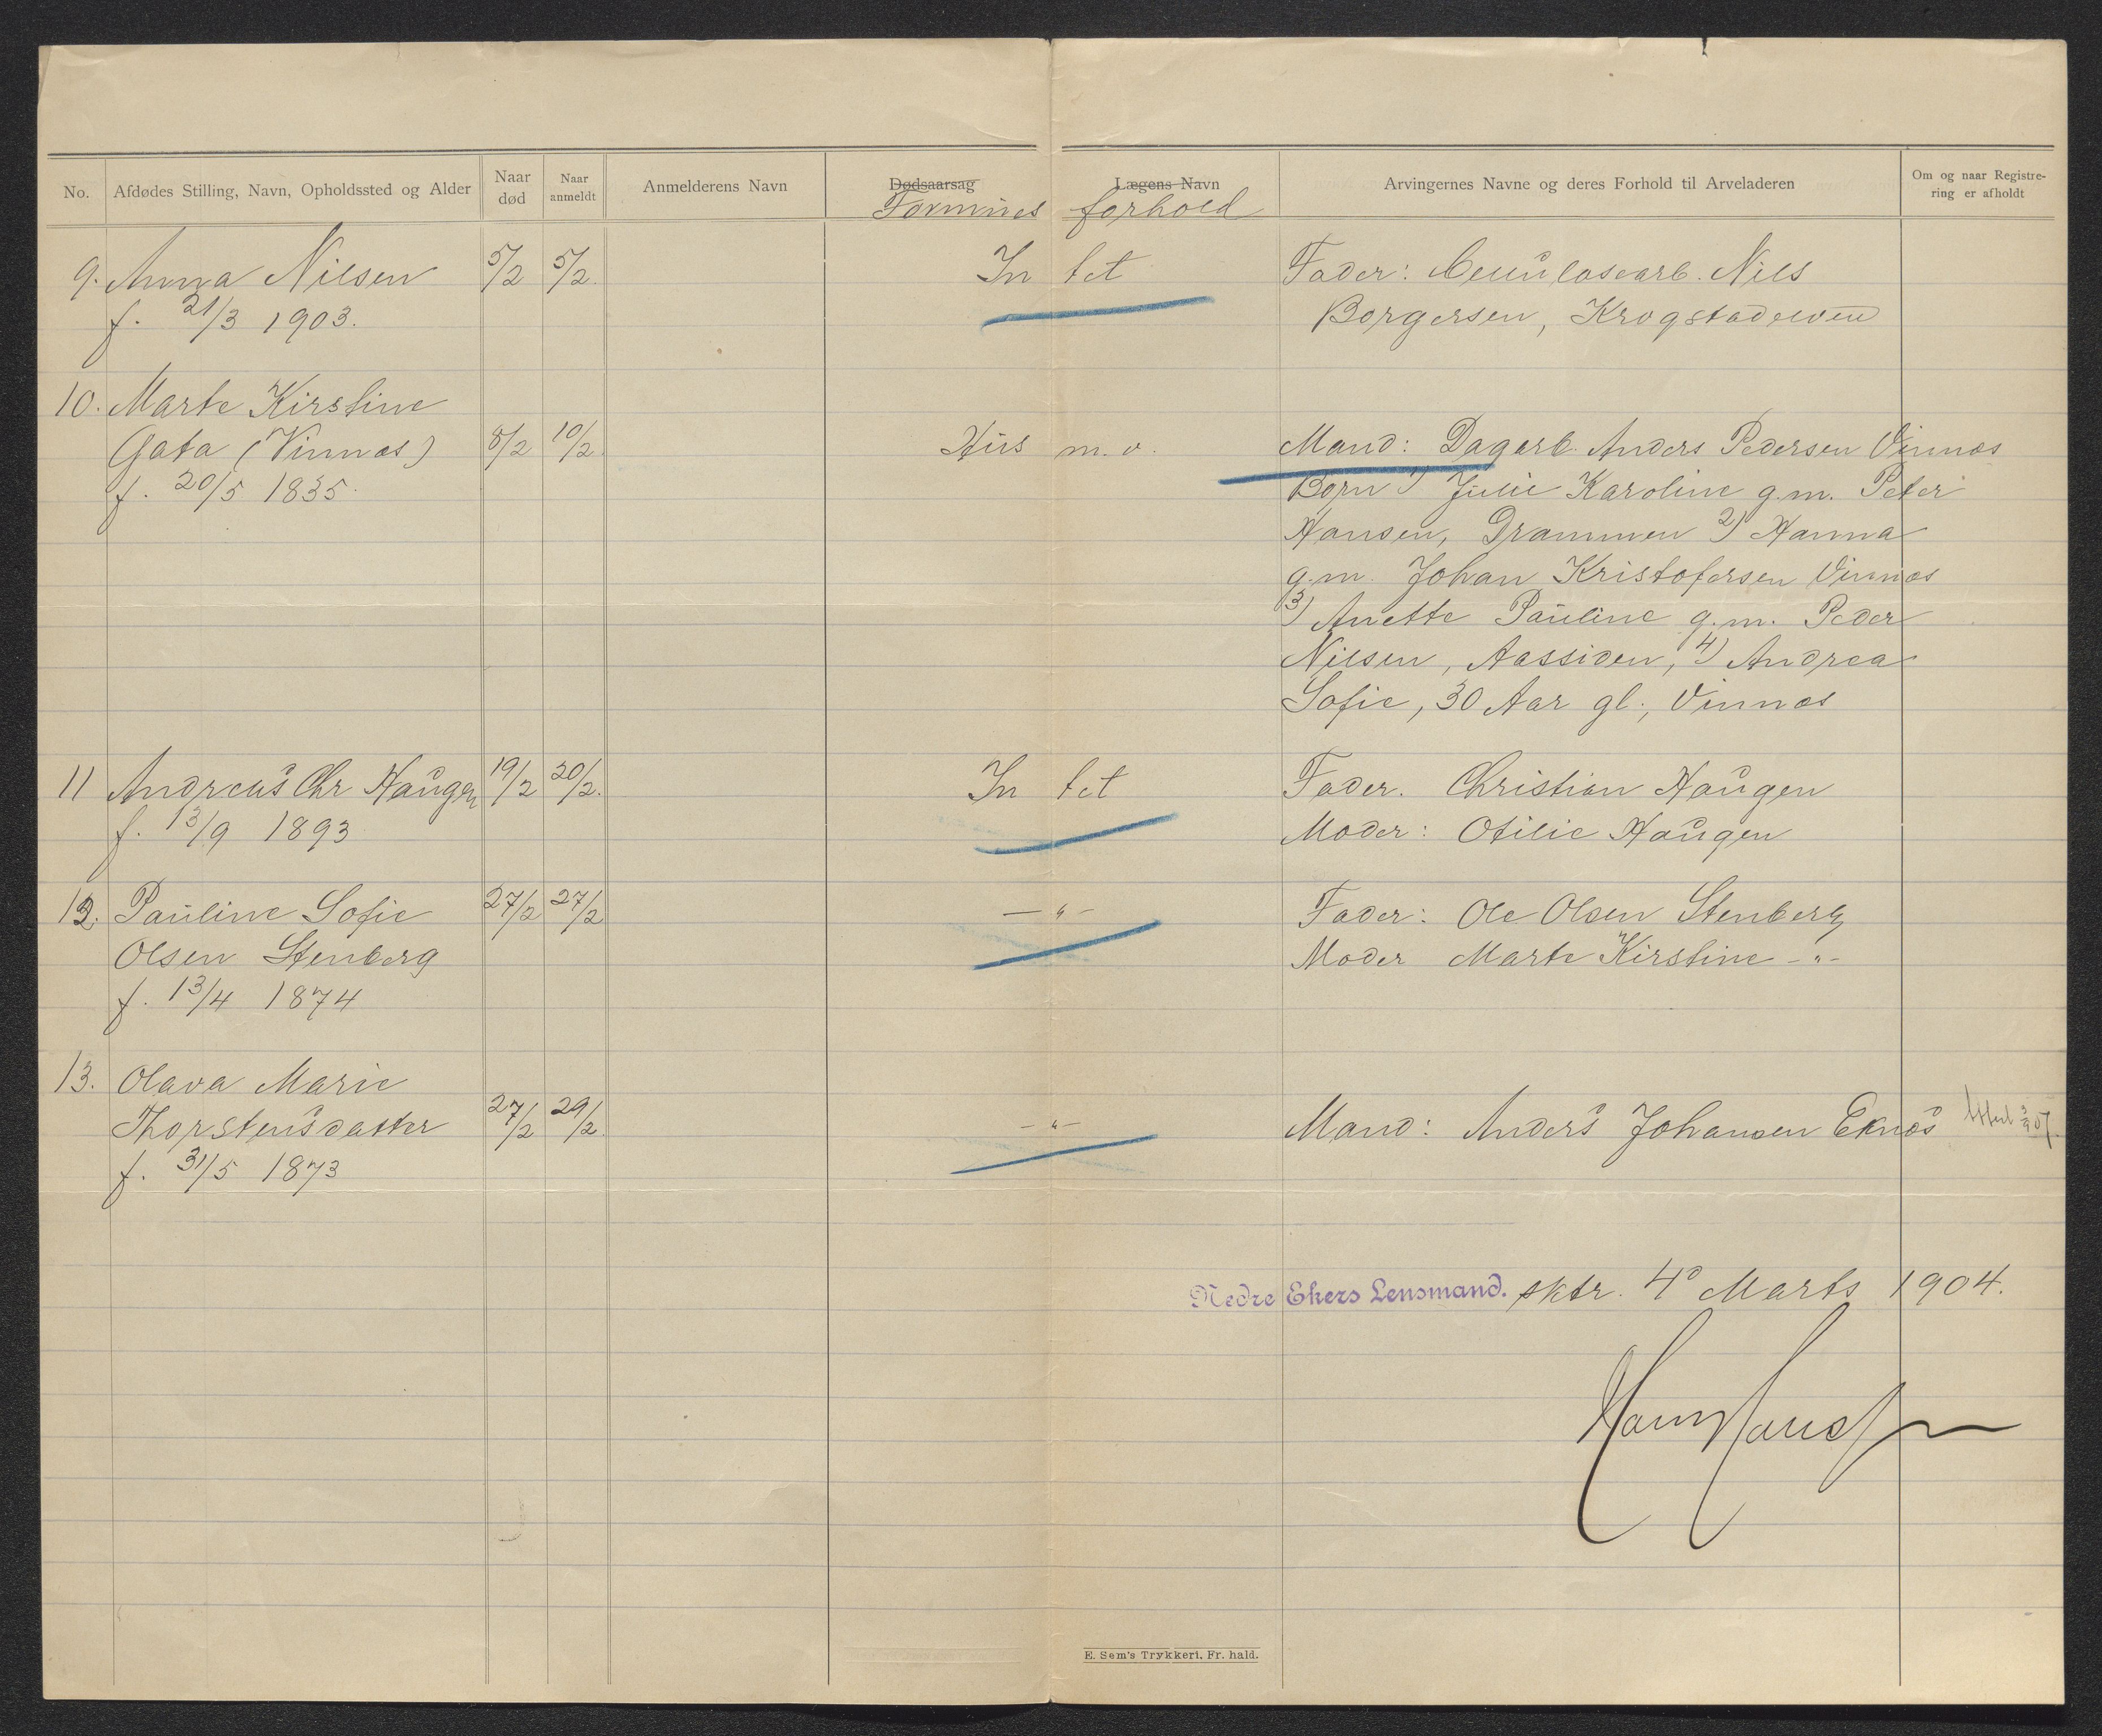 No.
Afdødes Stilling, Navn, Opholdssted og Alder
Naar død
Naar anmeldt
Anmelderens Navn
Dødsaarsag
Lægens Navn
Formues forhold
Arvingernes Navne og deres Forhold til Arveladeren
Om og naar Registre-
ring er afholdt
9. Anna Nilsen 5/2 5/2. Intet Fader: Cellulosearb. Nils
f. 21/3 1903. Borgersen, Krogstadelven
10. Marte Kirstine
Gata (Vinnæs) 8/2 10/2. Hus m.v. Mand: Dagarb. Anders Pedersen Vinnæs
f. 20/5 1835. Børn 1) Julie Karoline g.m. Peter
Hansen, Drammen 2) Hanna
g.m. Johan Kristofersen Vinnæs
3) Anette Pauline g.m. Peder
Nilsen, Aassiden, 4) Andrea
Sofie, 30 Aar gl., Vinnæs
11 Andreas Chr Haugen 19/2 20/2. Intet Fader. Christian Haugen
f. 13/9 1893 Moder: Otilie Haugen
12. Pauline Sofie 27/2 27/2 -"- Fader: Ole Olsen Stenberg
Olsen Stenberg Moder Marte Kirstine -"-
f. 13/4 1874
13. Olava Marie
Thorstensdatter 27/2 29/2. -"- Mand: Anders Johansen Eknæs
f. 31/5 1873
Nedre Ekers Lensmand. sktr. 4 Marts 1904.
E. Sem's Trykkeri, Fr.hald.